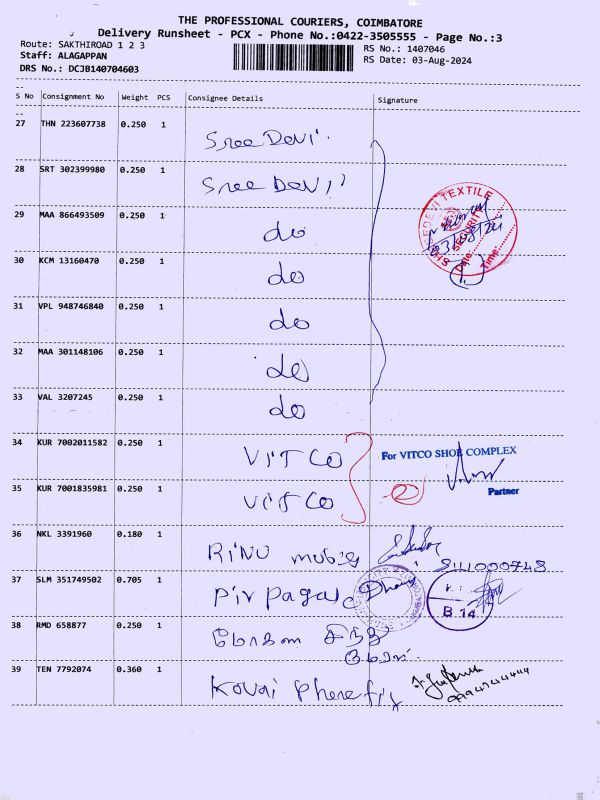 THE PROFESSIONAL COURIERS, COIMBATORE
Delivery Runsheet - PCX - Phone No.:0422-3505555 - Page No.:3
Route: SAKTHIROAD 1 2 3
RS No.: 1407046
Staff: ALAGAPPAN
RS Date: 03-Aug-2024
DRS No.: DCJB140704603
S No Consignment No Weight PCS Consignee Details Signature
27 THN 223607738 0.250 1 Sree Devi
28 SRT 302399980 0.250 1 Sree Devi
29 MAA 866493509 0.250 1 do
30 KCM 13160470 0.250 1 do
31 VPL 948746840 0.250 1 do
32 MAA 301148106 0.250 1 do
33 VAL 3207245 0.250 1 do
SREEDEVI TEXTILE
SECURITY
03/08/24
Date
Time
34 KUR 7002011582 0.250 1 VITCO
For VITCO SHOE COMPLEX
35 KUR 7001835981 0.250 1 VITCO
2
Partner
36 NKL 3391960 0.180 1 RINU
37 SLM 351749502 0.705 1
B 14
38 RMD 658877 0.250 1
39 TEN 7792074 0.360 1 Kovai